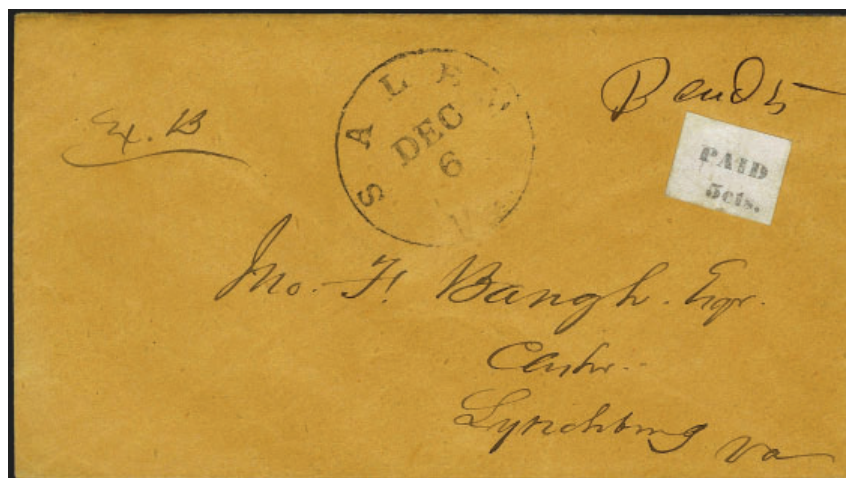 SALEM
DEC
6
Va
Paid 5
PAID
5cts.
Ex. B
Jno. F. Baugh. Esqr.
Cashr.
Lynchburg Va